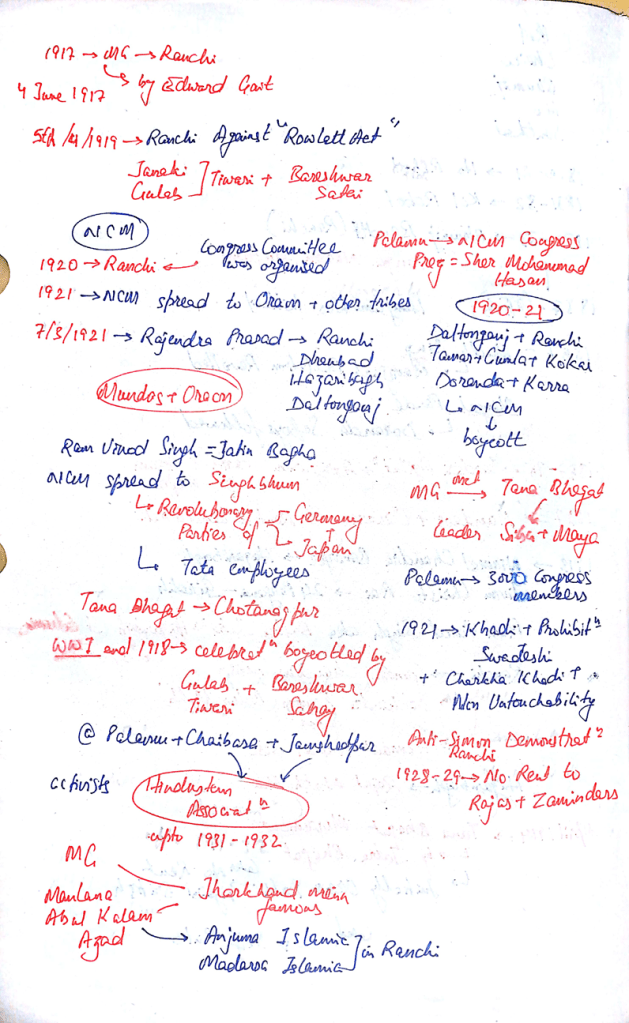 1917 → MG → Ranchi
4 June 1917 ↳ by Edward Gait
5th /4/1919 → Ranchi Against "Rowlett Act"
Janaki
Gulab ] Tiwari + Bareshwar Sahai
NCM
Congress Committee was organised
1920 → Ranchi ←
1921 → NCM spread to Oraon + other tribes
7/3/1921 → Rajendra Prasad → Ranchi
Dhanbad
Hazaribagh
Daltonganj
Mundas + Oraon
Palamu → NCM Congress
Prez = Sher Mohammad Hasan
1920-21
Daltonganj + Ranchi
Tamar + Gumla + Kokar
Doranda + Karra
↳ NCM
↓
boycott
Ram Vinod Singh = Jatin Bagha
NCM spread to Singhbhum
↳ Revolutionary Parties of Germany + Japan
↳ Tata employees
MG met → Tana Bhagat
Leader Sibu + Maya
Tana Bhagat → Chotanagpur
WWI end 1918 → celebratⁿ boycotted by
Gulab Tiwari + Bareshwar Sahay
Palamu → 3000 Congress members
1921 → Khadi + Prohibitⁿ
Swadeshi
+ Charkha Khadi +
Non Untouchability
@ Palamu + Chaibasa + Jamshedpur
activists Hindustan Associatⁿ
upto 1931-1932
Anti-Simon Demonstratⁿ
Ranchi
1928-29 → No Rent to
Rajas + Zaminders
MG
Maulana
Abul Kalam
Azad
Jharkhand mein famous
→ Anjuma Islamic
Madarsa Islamia ] in Ranchi